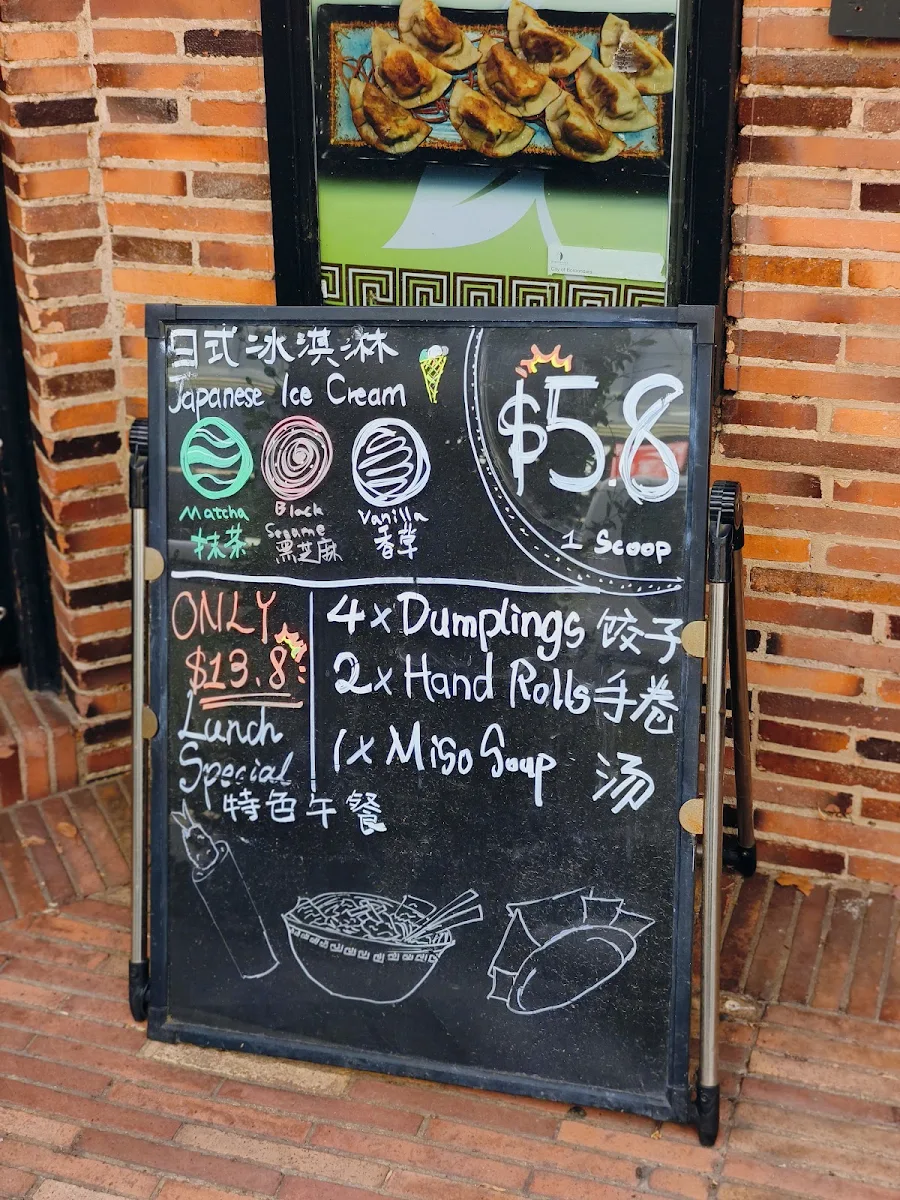 日式冰淇淋
Japanese Ice Cream
$5.8
1 Scoop
Matcha
抹茶
Black
Sesame
黑芝麻
Vanilla
香草
ONLY
$13.8
Lunch
Special
特色午餐
4x Dumplings 饺子
2x Hand Rolls 手卷
1x Miso Soup 汤